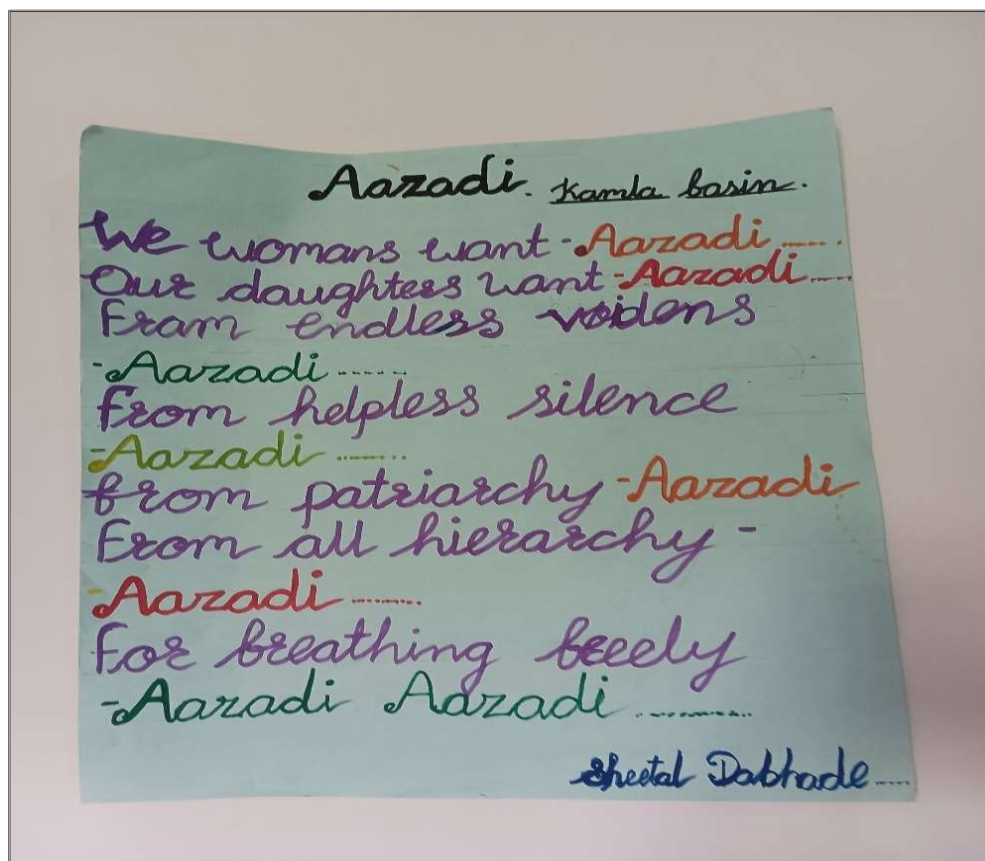 Aazadi. Kamla basin.
We womans want - Aazadi ......
Our daughters want - Aazadi .....
From endless voidens
- Aazadi ......
From helpless silence
- Aazadi .......
from patriarchy - Aazadi
From all hierarchy -
- Aazadi ........
For breathing freely
- Aazadi Aazadi ..........
Sheetal Dabhade ....